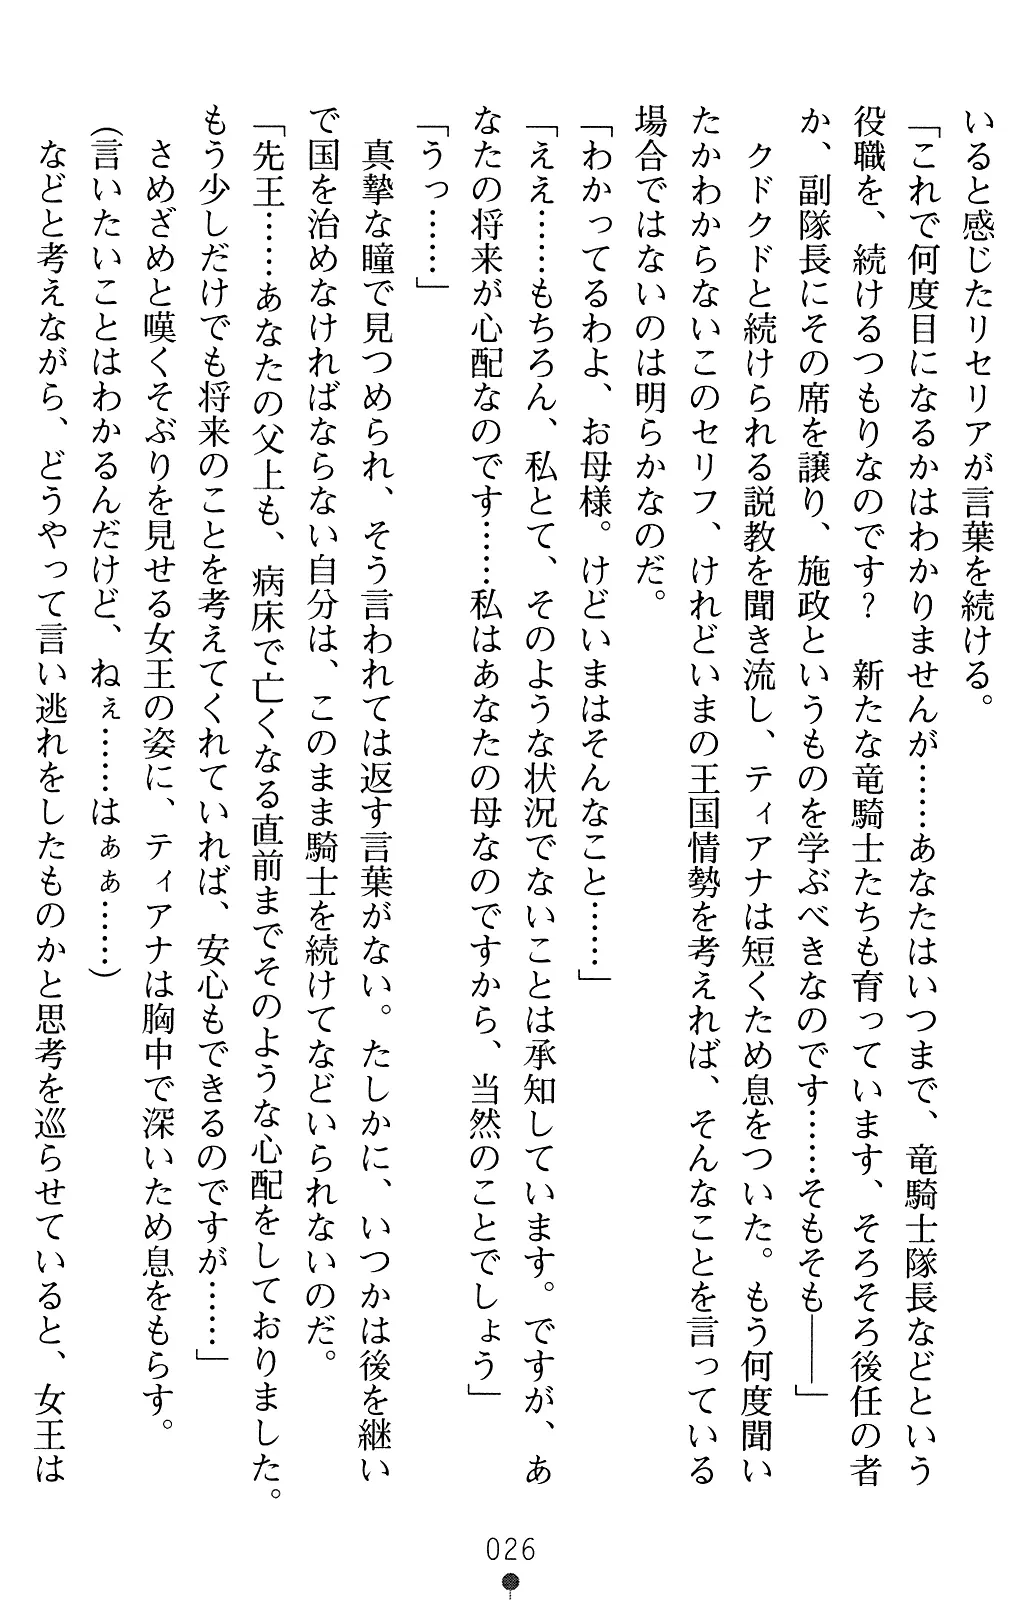 いると感じたリセリアが言葉を続ける。
「これで何度目になるかはわかりませんが……あなたはいつまで、竜騎士隊長などという
役職を、続けるつもりなのです？　新たな竜騎士たちも育っています、そろそろ後任の者
か、副隊長にその席を譲り、施政というものを学ぶべきなのです……そもそも――」
　クドクドと続けられる説教を聞き流し、ティアナは短くため息をついた。もう何度聞い
たかわからないこのセリフ、けれどいまの王国情勢を考えれば、そんなことを言っている
場合ではないのは明らかなのだ。
「わかってるわよ、お母様。けどいまはそんなこと……」
「ええ……もちろん、私とて、そのような状況でないことは承知しています。ですが、あ
なたの将来が心配なのです……私はあなたの母なのですから、当然のことでしょう」
「うっ……」
　真摯な瞳で見つめられ、そう言われては返す言葉がない。たしかに、いつかは後を継い
で国を治めなければならない自分は、このまま騎士を続けてなどいられないのだ。
「先王……あなたの父上も、病床で亡くなる直前までそのような心配をしておりました。
もう少しだけでも将来のことを考えてくれていれば、安心もできるのですが……」
　さめざめと嘆くそぶりを見せる女王の姿に、ティアナは胸中で深いため息をもらす。
（言いたいことはわかるんだけど、ねぇ……はぁぁ……）
　などと考えながら、どうやって言い逃れをしたものかと思考を巡らせていると、女王は
026